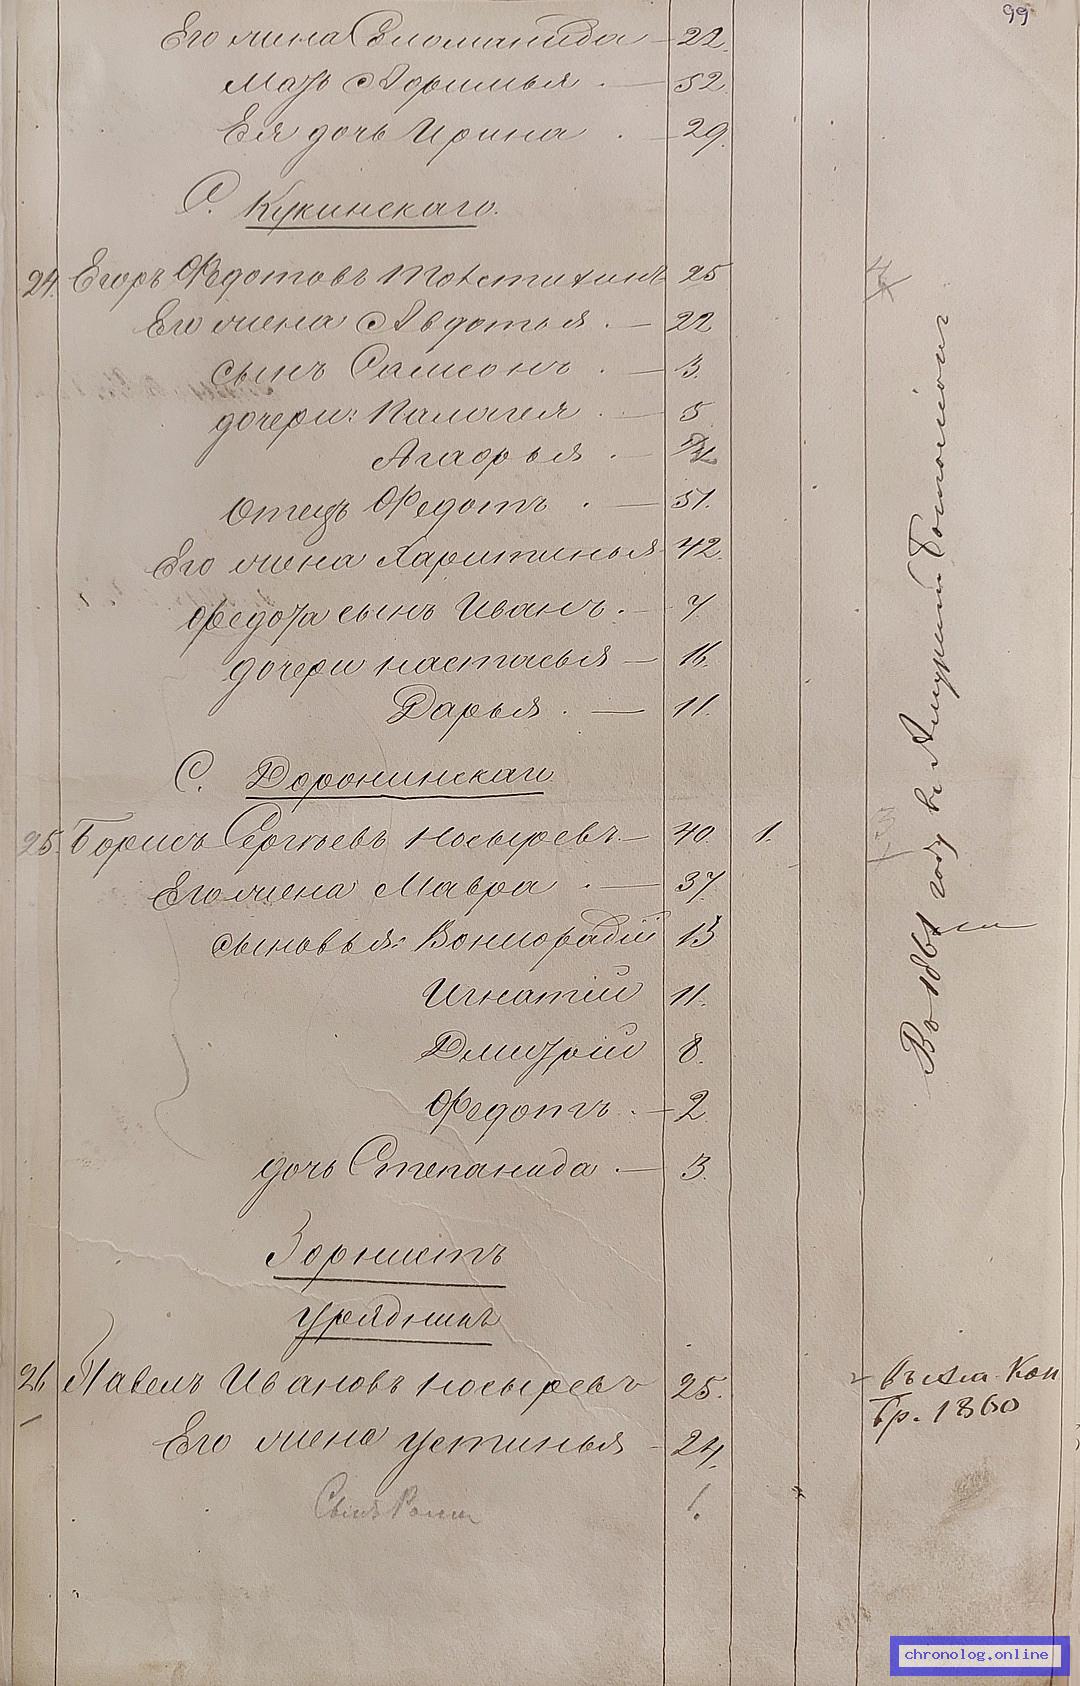 99
Его жена Соломанида — 22.
Мать Афимья . — 52.
Ея дочь Ирина . — 29.
С. Кукинскаго.
24. Егоръ Федотовъ 25
Его жена Авдотья . — 22
сынъ Самсонъ . — 3.
дочери: Палагея . — 5
Агафья . —
Отецъ Федотъ . — 51.
Его жена Харитинья 42.
Федота сынъ Иванъ . — 7.
дочери Настасья — 16.
Дарья . — 11.
С. Доронинскаго
25. Борисъ Сергѣевъ Носыревъ — 40. 1.
Его жена Мавра . — 37.
сыновья: 13
Игнатій 11.
Дмитрій 8.
Федотъ . — 2
дочь Степанида . — 3.
Въ 1861 году въ Амурский
Горнистъ
Урядникъ
26 Павелъ Ивановъ Носыревъ 25.
Его жена Устинья — 24.
Сынъ 1.
въ Кон
Бр. 1860
chronolog.online